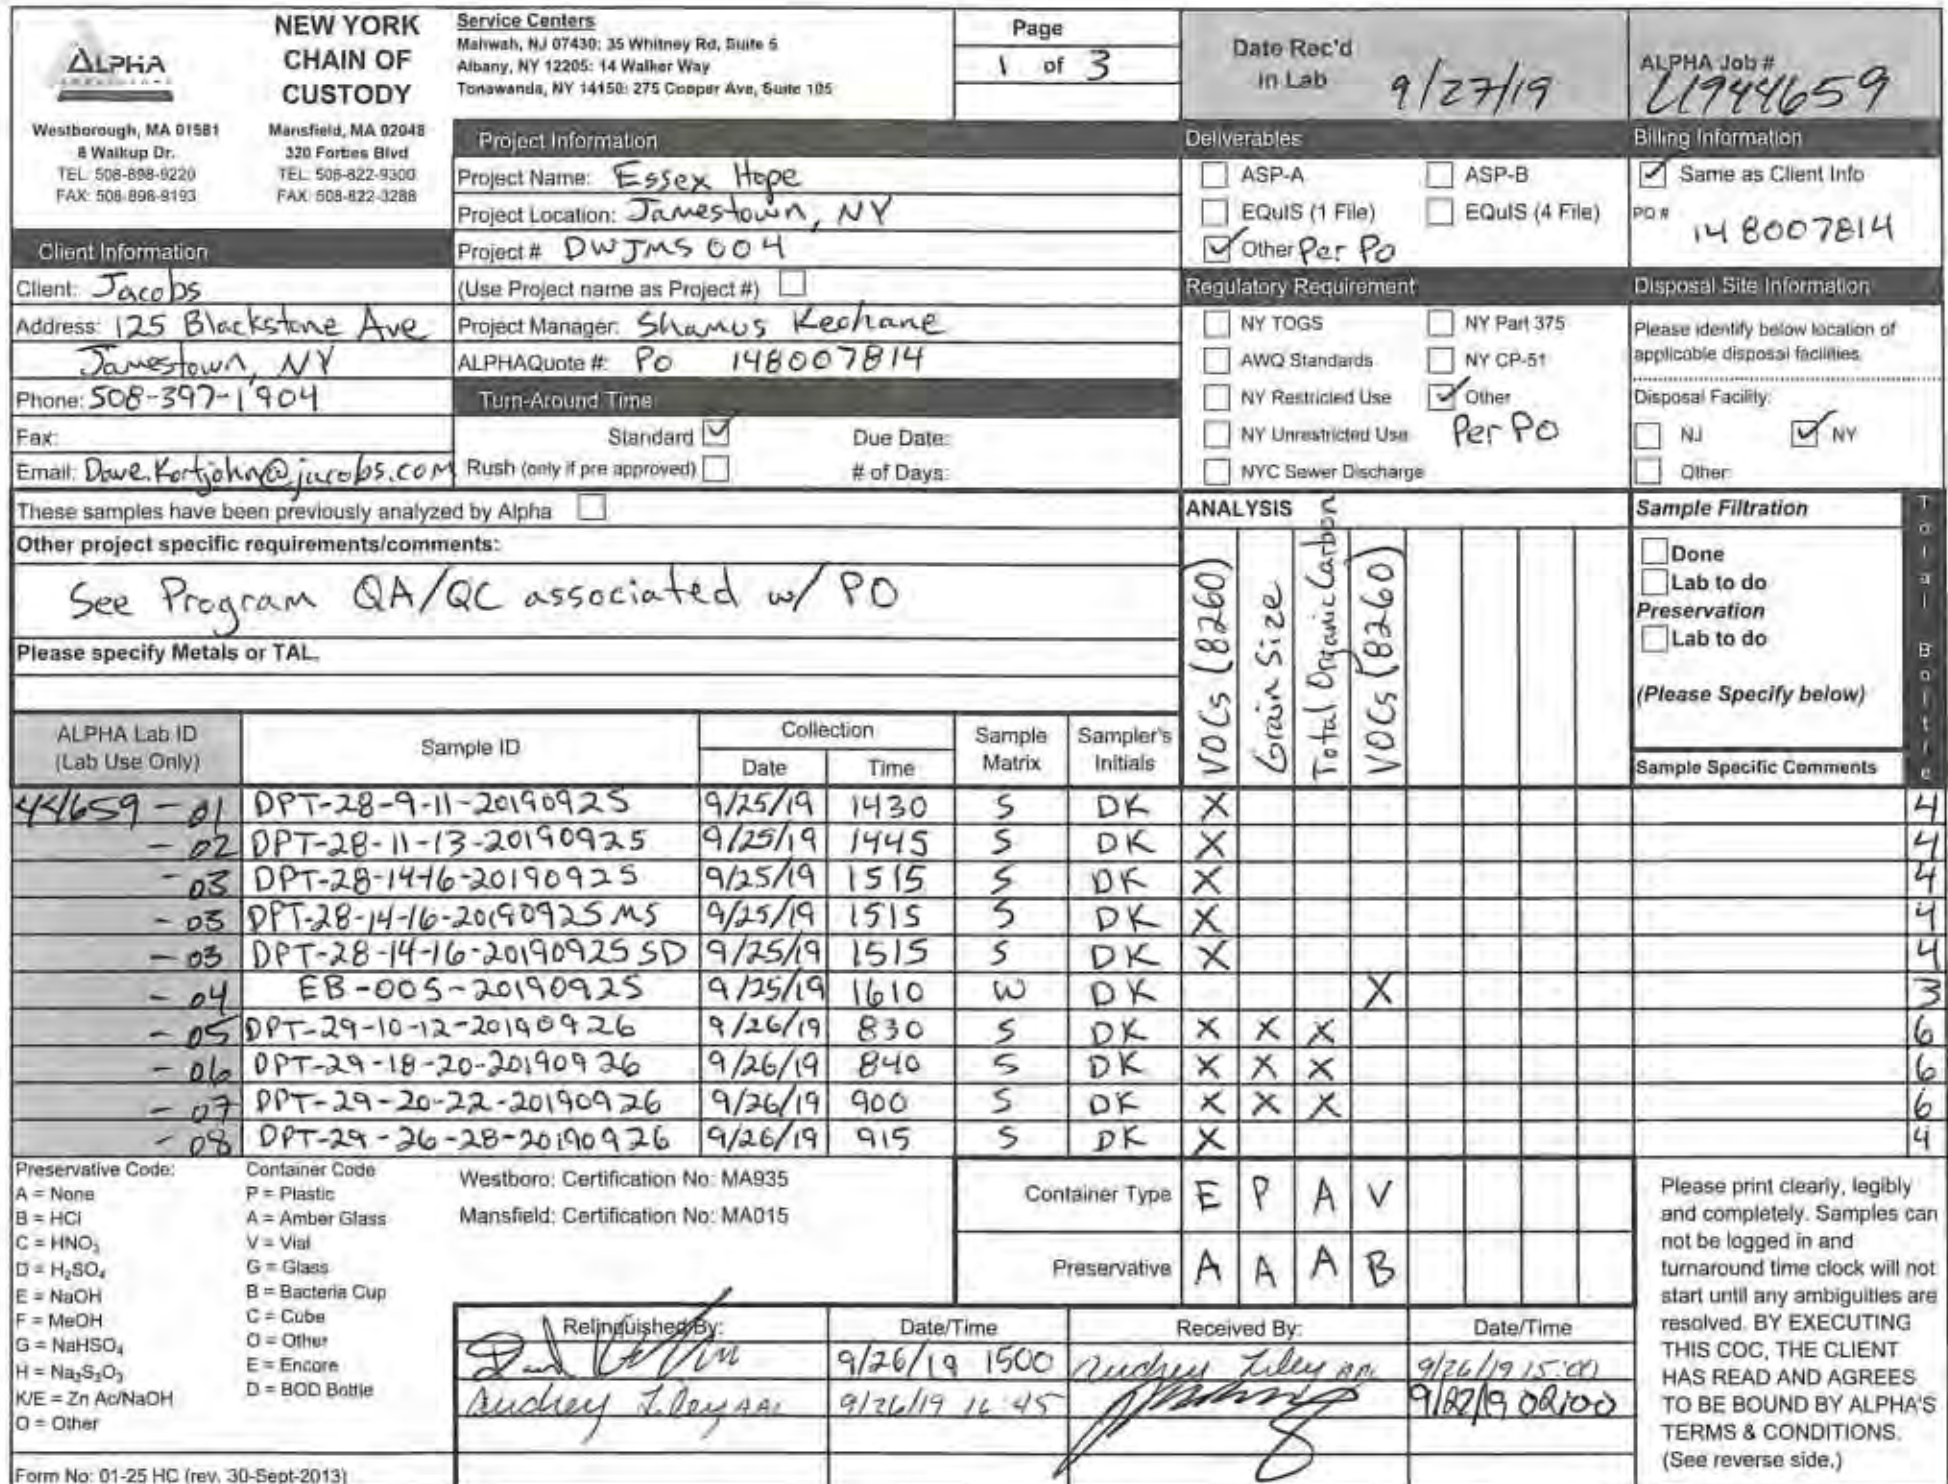 ALPHA
NEW YORK
CHAIN OF
CUSTODY
Westborough, MA 01581
8 Walkup Dr.
TEL: 508-898-9220
FAX: 508-898-9193
Mansfield, MA 02048
320 Forbes Blvd
TEL: 508-822-9300
FAX: 508-822-3288
Service Centers
Mahwah, NJ 07430: 35 Whitney Rd, Suite 5
Albany, NY 12205: 14 Walker Way
Tonawanda, NY 14150: 275 Cooper Ave, Suite 105
Page
1 of 3
Date Rec'd
in Lab 9/27/19
ALPHA Job #
L1944659
Client Information
Client: Jacobs
Address: 125 Blackstone Ave
Jamestown, NY
Phone: 508-397-1904
Fax:
Email: Dave.Kortjohn@jacobs.com
Project Information
Project Name: Essex Hope
Project Location: Jamestown, NY
Project # DWJMS004
(Use Project name as Project #)
Project Manager: Shamus Keohane
ALPHAQuote #: PO 148007814
Turn-Around Time
Standard
Due Date:
Rush (only if pre approved)
# of Days:
Deliverables
ASP-A
ASP-B
EQuIS (1 File)
EQuIS (4 File)
Other Per PO
Regulatory Requirement
NY TOGS
NY Part 375
AWQ Standards
NY CP-51
NY Restricted Use
Other
NY Unrestricted Use
Per PO
NYC Sewer Discharge
Billing Information
Same as Client Info
PO #
148007814
Disposal Site Information
Please identify below location of
applicable disposal facilities.
Disposal Facility:
NJ
NY
Other:
These samples have been previously analyzed by Alpha
Other project specific requirements/comments:
See Program QA/QC associated w/ PO
Please specify Metals or TAL.
ANALYSIS
VOCs (8260)
Grain Size
Total Organic Carbon
VOCs (8260)
Sample Filtration
Done
Lab to do
Preservation
Lab to do
(Please Specify below)
Sample Specific Comments
Total Bottle
ALPHA Lab ID
(Lab Use Only)
Sample ID
Collection
Date
Time
Sample
Matrix
Sampler's
Initials
44659-01 DPT-28-9-11-20190925 9/25/19 1430 S DK X 4
-02 DPT-28-11-13-20190925 9/25/19 1445 S DK X 4
-03 DPT-28-14-16-20190925 9/25/19 1515 S DK X 4
-03 DPT-28-14-16-20190925 MS 9/25/19 1515 S DK X 4
-03 DPT-28-14-16-20190925 SD 9/25/19 1515 S DK X 4
-04 EB-005-20190925 9/25/19 1610 W DK X 3
-05 DPT-29-10-12-20190926 9/26/19 830 S DK X X X 6
-06 DPT-29-18-20-20190926 9/26/19 840 S DK X X X 6
-07 DPT-29-20-22-20190926 9/26/19 900 S DK X X X 6
-08 DPT-29-26-28-20190926 9/26/19 915 S DK X 4
Preservative Code:
A = None
B = HCl
C = HNO3
D = H2SO4
E = NaOH
F = MeOH
G = NaHSO4
H = Na2S2O3
K/E = Zn Ac/NaOH
O = Other
Container Code
P = Plastic
A = Amber Glass
V = Vial
G = Glass
B = Bacteria Cup
C = Cube
O = Other
E = Encore
D = BOD Bottle
Westboro: Certification No: MA935
Mansfield: Certification No: MA015
Container Type E P A V
Preservative A A A B
Relinquished By:
Date/Time
Received By:
Date/Time
9/26/19 1500 Audrey 9/26/19 15:00
Audrey 9/26/19 16:45
Please print clearly, legibly
and completely. Samples can
not be logged in and
turnaround time clock will not
start until any ambiguities are
resolved. BY EXECUTING
THIS COC, THE CLIENT
HAS READ AND AGREES
TO BE BOUND BY ALPHA'S
TERMS & CONDITIONS.
(See reverse side.)
Form No: 01-25 HC (rev. 30-Sept-2013)